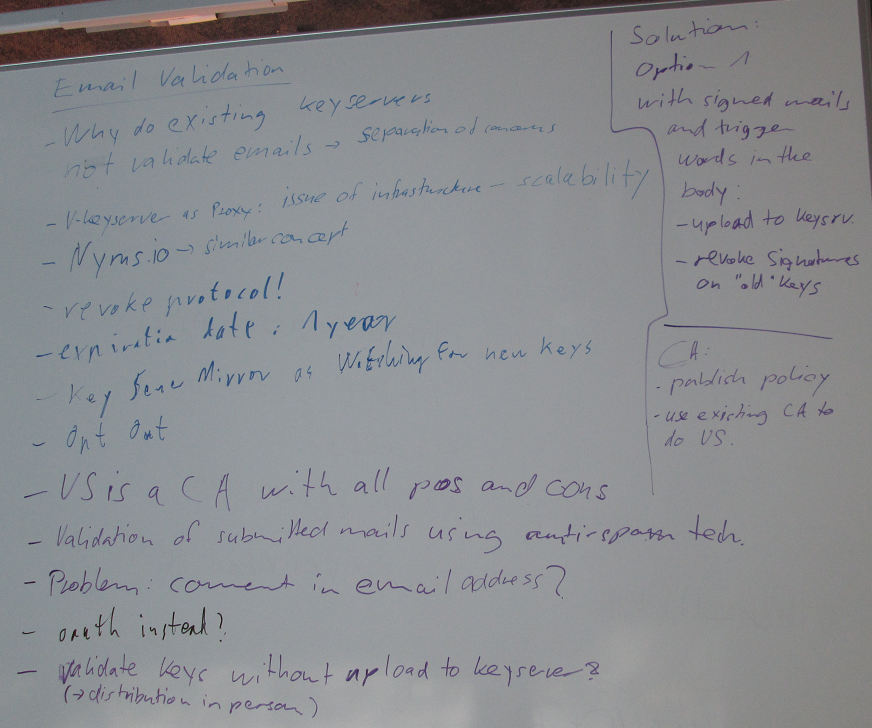 Email Validation
- Why do existing keyservers
not validate emails → separation of concerns
- V-keyserver as Proxy: issue of infrastructure - scalability
- Nyms.io → similar concept
- revoke protocol!
- expiration date: 1 year
- Key Mirror as Watching for new keys
- Opt Out
- VS is a CA with all pos and cons
- Validation of submitted mails using anti-spam tech.
- Problem: comment in email address?
- oauth instead?
- validate keys without upload to keyserver?
(→ distribution in person)
Solution:
Option 1
with signed mails
and trigger
words in the
body:
- upload to keysrv.
- revoke signatures
on "old" keys
CA:
- publish policy
- use existing CA to
do VS.